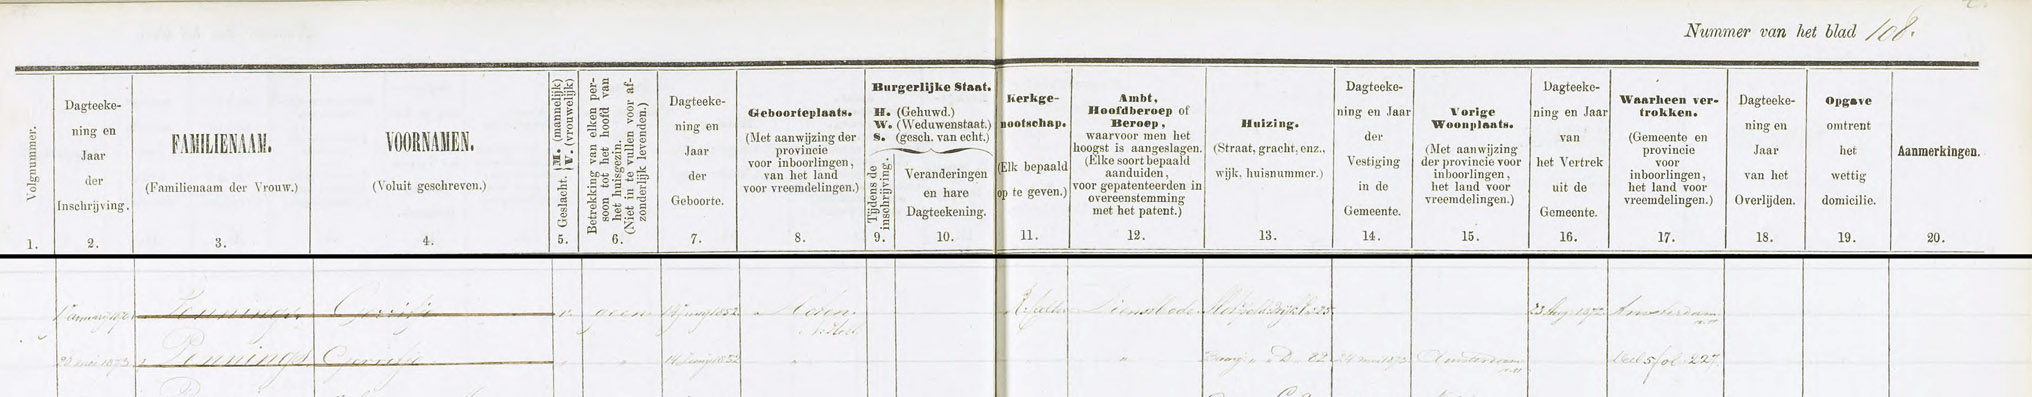 Nummer van het blad 108.
Volgnummer.
1.
Dagteeke-
ning en
Jaar
der
Inschrijving.
2.
FAMILIENAAM.
(Familienaam der Vrouw.)
3.
VOORNAMEN.
(Voluit geschreven.)
4.
Geslacht.
M. (mannelijk)
V. (vrouwelijk)
5.
Betrekking van elken per-
soon tot het hoofd van
het huisgezin.
(Niet in te vullen voor af-
zonderlijk levenden.)
6.
Dagteeke-
ning en
Jaar
der
Geboorte.
7.
Geboorteplaats.
(Met aanwijzing der
provincie
voor inboorlingen,
van het land
voor vreemdelingen.)
8.
Burgerlijke Staat.
H. (Gehuwd.)
W. (Weduwenstaat.)
S. (gesch. van echt.)
Tijdens de
inschrijving.
9.
Veranderingen
en hare
Dagteekening.
10.
Kerkge-
nootschap.
(Elk bepaald
op te geven.)
11.
Ambt,
Hoofdberoep of
Beroep,
waarvoor men het
hoogst is aangeslagen.
(Elke soort bepaald
aanduiden,
voor gepatenteerden in
overeenstemming
met het patent.)
12.
Huizing.
(Straat, gracht, enz.,
wijk, huisnummer.)
13.
Dagteeke-
ning en Jaar
der
Vestiging
in de
Gemeente.
14.
Vorige
Woonplaats.
(Met aanwijzing
der provincie voor
inboorlingen,
het land voor
vreemdelingen.)
15.
Dagteeke-
ning en Jaar
van
het Vertrek
uit de
Gemeente.
16.
Waarheen ver-
trokken.
(Gemeente en
provincie
voor
inboorlingen,
het land voor
vreemdelingen.)
17.
Dagteeke-
ning en
Jaar
van het
Overlijden.
18.
Opgave
omtrent
het
wettig
domicilie.
19.
Aanmerkingen.
20.
Pennings Gerritje v. geen 1852 Dienstbode 23 Aug 1872 Amsterdam
Pennings Gerritje " 14 Junij 1852 " " D. 22 24 mei 1873 Amsterdam deel 5 fol 227